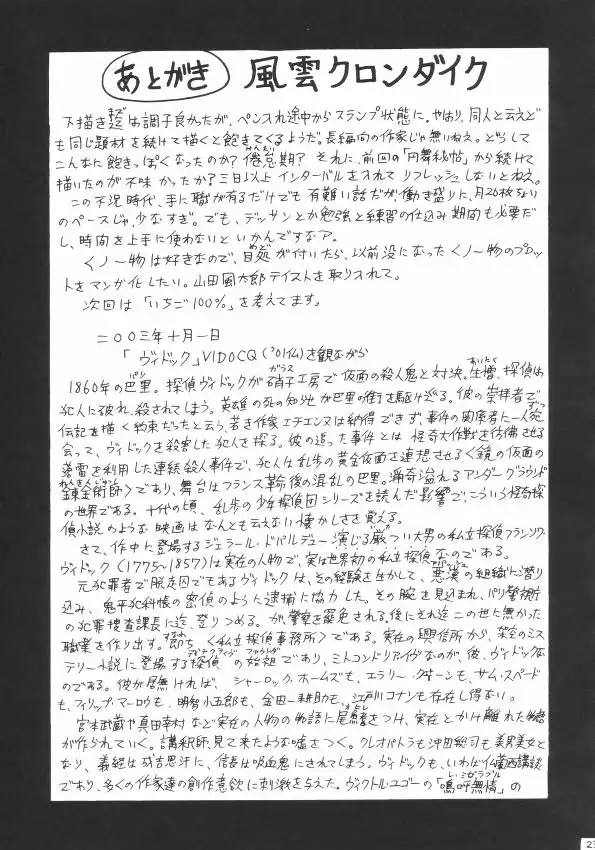 あとがき 風雲クロンダイク
下描き迄は調子良かったが、ペン入れ途中からスランプ状態に。やはり、同人と云えど
も同じ題材を続けて描くと飽きてくるようだ。長編向の作家じゃ無いねえ。どうして
こんなに飽きっぽくなったのか?倦怠期?それに、前回の「円舞秘帖」から続けて
描いたのが不味かったか?三日以上インターバルを入れてリフレッシュしないとねえ。
この不況時代、手に職が有るだけでも有難い話だが、働き盛りに、月26枚ちょり
のペースじゃ、少なすぎ。でも、デッサンとか勉強と練習の仕込み期間も必要だ
し、時間を上手に使わないといかんですなァ。
くノ一物は好きなので、目処が付いたら、以前没になったくノ一物のプロッ
トをマンガ化したい。山田風太郎テイストを取り入れて。
次回は「いちご100%」を考えてます。
二〇〇三年十月一日
「ヴィドック」VIDOCQ('01仏)を観ながら
1860年の巴里。探偵ヴィドックが硝子工房で仮面の殺人鬼と対決。生憎、探偵は
犯人に破れ、殺されてしまう。英雄の死の知らせが巴里の街を駆け巡る。彼の崇拝者で
伝記を描く約束だったと云う若き作家エチエンヌは納得できず、事件の関係者に一人宛
会って、ヴィドックを殺害した犯人を探る。彼の追った事件とは怪奇大作戦を彷彿させる
落雷を利用した連続殺人事件で、犯人は乱歩の黄金仮面を連想させる〈鏡の仮面の
錬金術師〉であり、舞台はフランス革命後の混乱の巴里。猟奇溢れるアンダーグラウンド
の世界である。十代の頃、乱歩の少年探偵団シリーズを読んだ影響で、こういう怪奇探
偵小説のような映画はなんとも云えない懐かしさを覚える。
さて、作中に登場するジェラール・ドパルデュー演じる厳つい大男の私立探偵フランソワ・
ヴィドック(1775〜1857)は実在の人物で、実は世界初の私立探偵なのである。
元犯罪者で脱走囚でもあるヴィドックは、その経験を生かして、悪漢の組織に潜り
込み、鬼平犯科帳の密偵のように逮捕に協力した。その腕を見込まれ、パリ警視庁
の犯罪捜査課長に迄、登りつめる。が、警察を罷免される。後にそれ迄この世に無かった
職業を作り出す。即ち〈私立探偵事務所〉である。実在の興信所から、架空のミス
テリー小説に登場する探偵の始祖であり、ミトコンドリアイヴなのが、彼、ヴィドックな
のである。彼が居無ければ、シャーロック・ホームズも、エラリー・クイーンも、サム・スペード
も、フィリップ・マーロウも、明智小五郎も、金田一耕助も、江戸川コナンも存在し得ない。
宮本武蔵や真田幸村など実在の人物の物語に尾鰭をつけ、実在とかけ離れた物語
が作られていく。講釈師、見て来たような嘘をつく。クレオパトラも沖田総司も美男美女と
なり、義経は成吉思汗に、信長は吸血鬼にされてしまう。ヴィドックも、いわば仏蘭西講談
であり、多くの作家達の創作意欲に刺激を与えた。ヴィクトル・ユゴーの「嗚呼無情」の